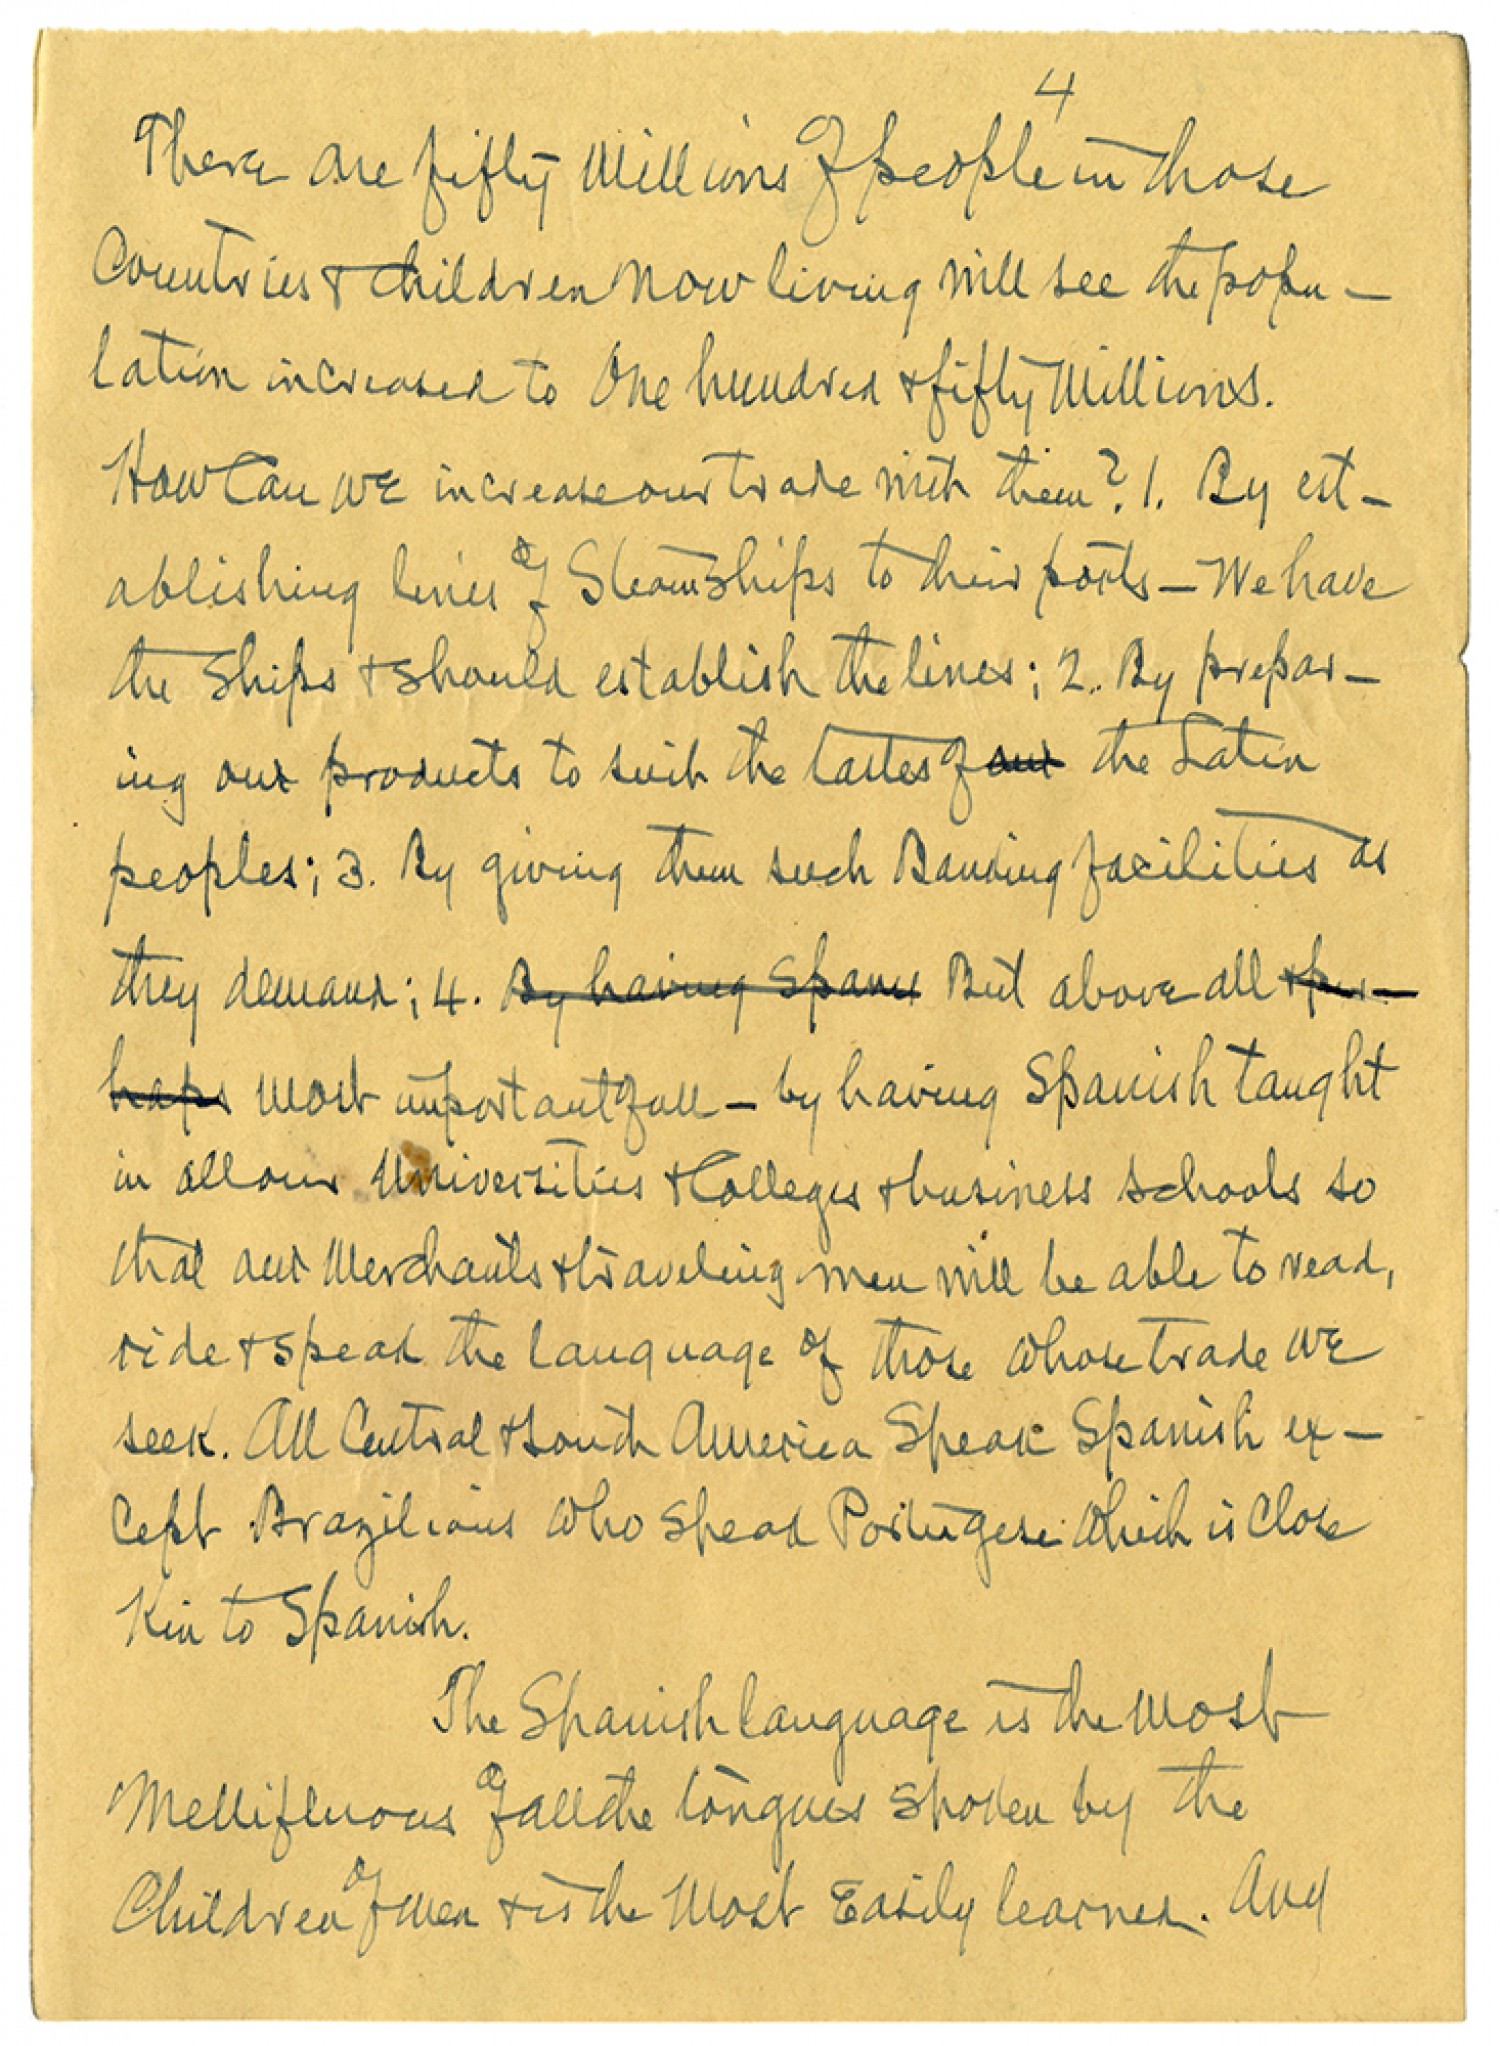 4
There are fifty Millions of people in those
Countries & children now living will see the popu-
lation increased to One hundred & fifty Millions.
How Can we increase our trade with them? 1. By est-
ablishing lines of Steamships to their ports - We have
the ships & should establish the lines; 2. By prepar-
ing our products to suit the tastes of our the Latin
peoples; 3. By giving them such Banking facilities as
they demand; 4. By having Spani But above all & per-
haps Most important of all - by having Spanish taught
in all our Universities & Colleges & business schools so
that our Merchants & traveling men will be able to read,
ride & speak the language of those whose trade we
seek. All Central & South America Speak Spanish ex-
cept Brazilians who speak Portugese which is Close
Kin to Spanish.
The Spanish language is the Most
Mellifluous of all the tongues spoken by the
Children of Men & is the Most Easily learned. And